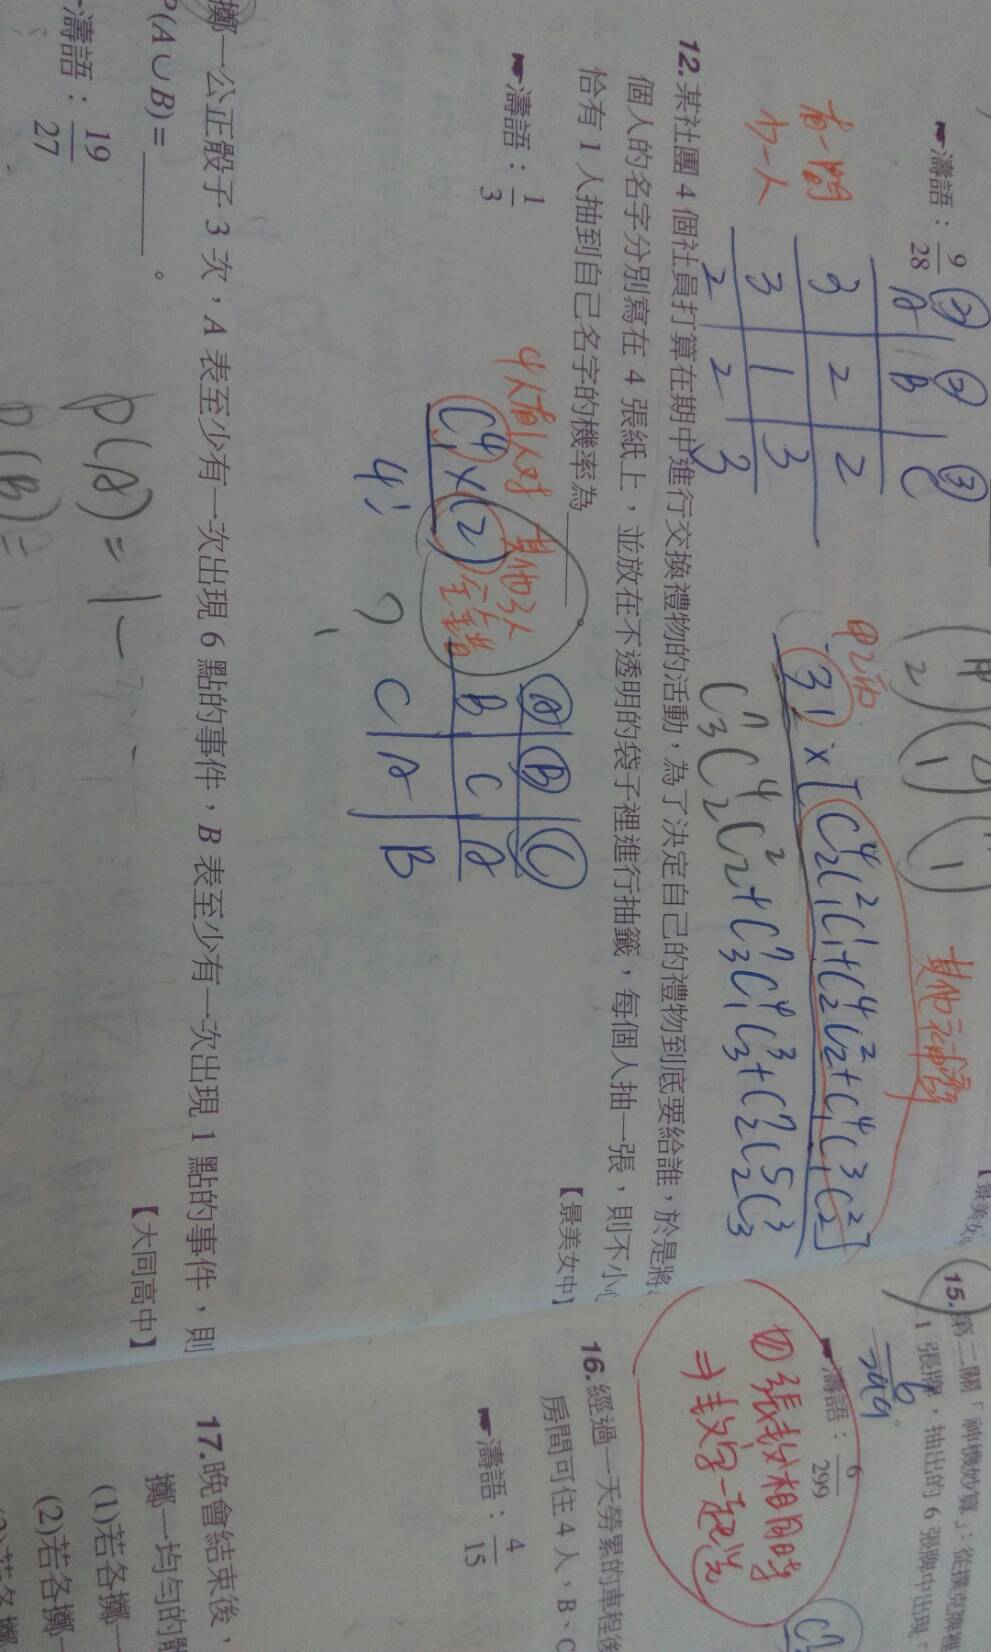 濤語：9/28
A B C
3 2 2
3 1 3
2 2 3
有一間
少一人
3! × [C⁴₂C²₁C¹₁+C⁴₂C²₂+C⁴₁C³₁C²₂]
C⁷₃C⁴₂C²₂+C⁷₃C⁴₁C³₃+C⁷₂C⁵₂C³₃
12.某社團 4 個社員打算在期中進行交換禮物的活動，為了決定自己的禮物到底要給誰，於是將
個人的名字分別寫在 4 張紙上，並放在不透明的袋子裡進行抽籤，每個人抽一張，則不小
恰有 1 人抽到自己名字的機率為______。
【景美女中】
濤語：1/3
4人有1人對
其他3人
全錯
C⁴₁×(2)
4!
A B C
B C A
C A B
擲一公正骰子 3 次，A 表至少有一次出現 6 點的事件，B 表至少有一次出現 1 點的事件，則
P(A∪B)=______。
【大同高中】
濤語：19/27
P(A)=1-
P(B)=
15.第二關「神機妙算」：從撲克牌裡
1 張牌，抽出的 6 張牌中出現
濤語：6/299
16.經過一天勞累的車程後
房間可住 4 人，B、C
濤語：4/15
17.晚會結束後，
擲一均勻的骰
(1)若各擲一
(2)若各擲一